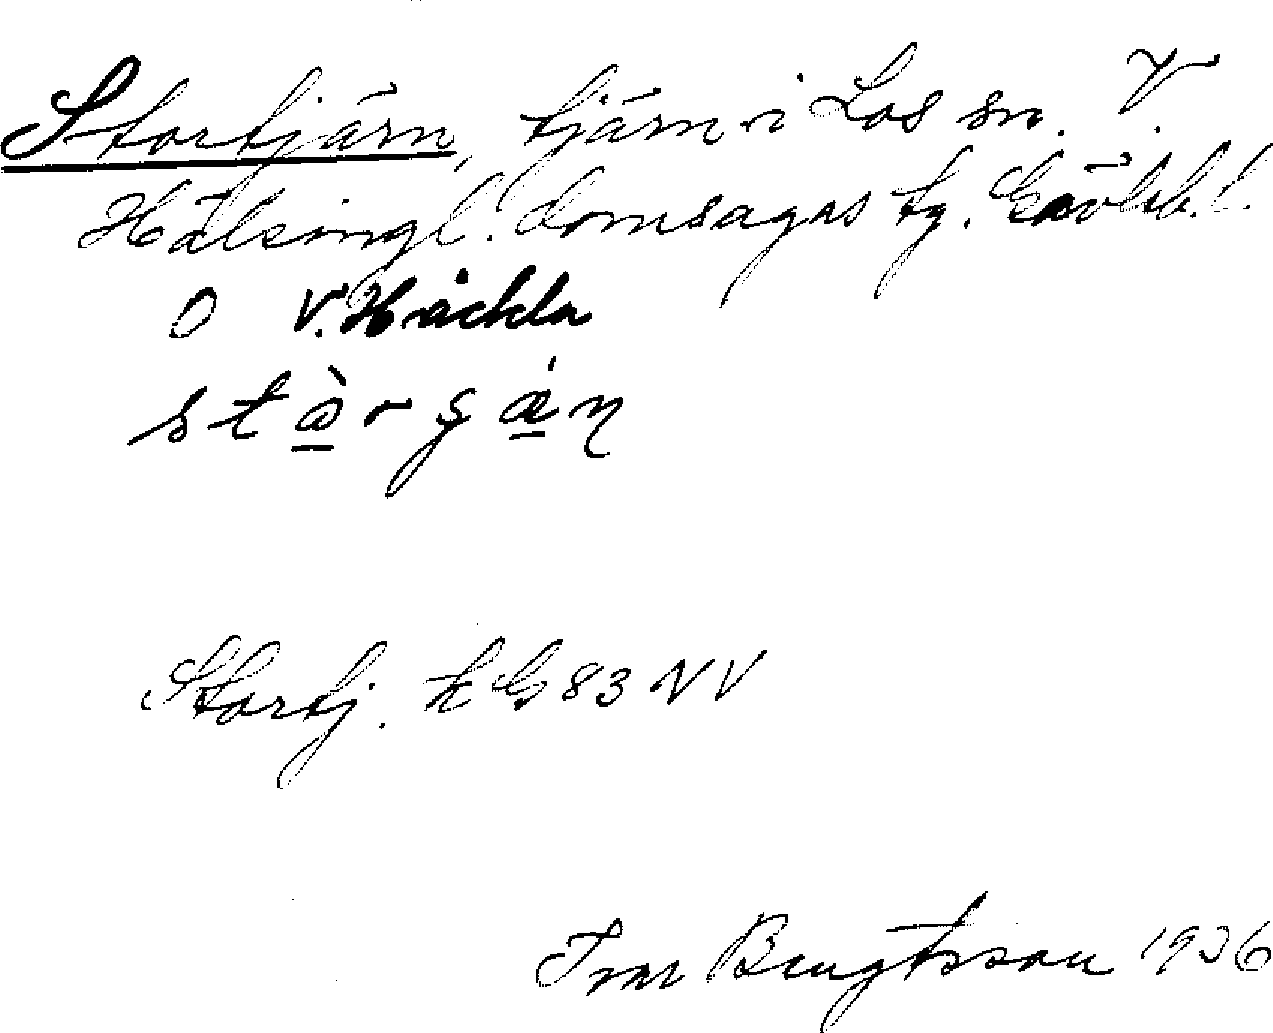 Stortjärn, tjärn i Los sn. V.
Hälsingl. domsagas tg. Gävleb. l.
O V. Häckla
Stortj. k G 83 NV
Ivar Bengtsson 1936